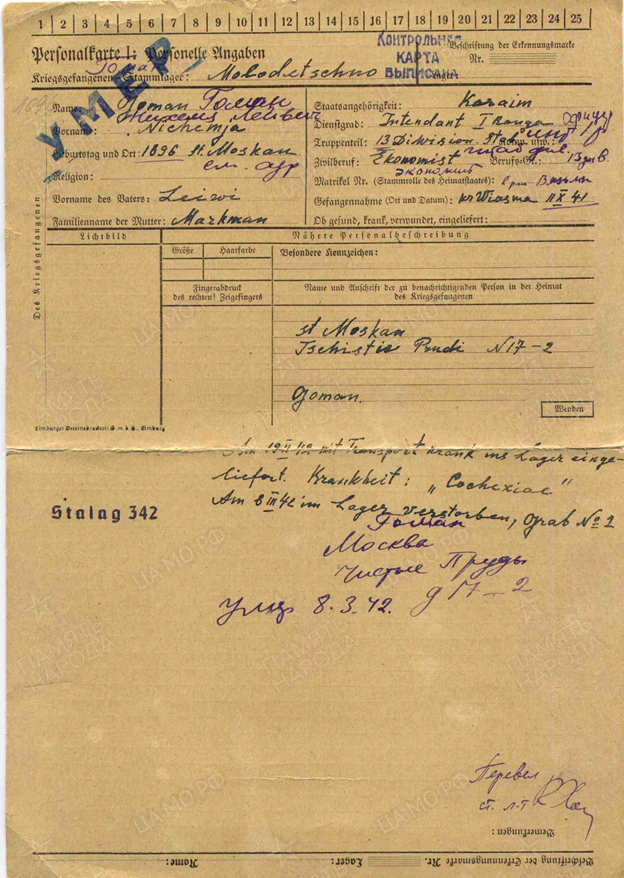 1 2 3 4 5 6 7 8 9 10 11 12 13 14 15 16 17 18 19 20 21 22 23 24 25
Personalkarte I: Personelle Angaben
КОНТРОЛЬНАЯ
КАРТА
ВЫПИСАНА
Beschriftung der Erkennungsmarke
Nr.
Kriegsgefangenen-Stammlager: Molodetschno
Lager:
УМЕР
Des Kriegsgefangenen
Name: Goman Гоман
Vorname: Nichemja
Geburtstag und Ort: 1896 st. Moskau
см. адр
Religion:
Vorname des Vaters: Leiwi
Familienname der Mutter: Markman
Staatsangehörigkeit: Karaim
Dienstgrad: Intendant I Ranga
Truppenteil: 13 Diwision Stab Komp. usw.:
Zivilberuf: Ekonomist Berufs-Gr.:
экономист
Matrikel Nr. (Stammrolle des Heimatstaates)
Gefangennahme (Ort und Datum): kr Wiasma 11 X 41
Ob gesund, krank, verwundet, eingeliefert:
Lichtbild
Nähere Personalbeschreibung
Größe
Haarfarbe
Besondere Kennzeichen:
Fingerabdruck
des rechten! Zeigefingers
Name und Anschrift der zu benachrichtigenden Person in der Heimat
des Kriegsgefangenen
st Moskau
Tschistie Prudi N 17-2
Goman.
Wenden
Limburger Vereinsdruckerei G.m.b.H., Limburg
Am 19 II 42 mit Transport krank ins Lager einge-
liefert. Krankheit: „Cochexiae"
Am 8 III 42 im Lager verstorben, Grab № 2
Stalag 342
Гоман
Москва
Чистые Пруды
д 17-2
Умер 8.3.42.
Перевел
ст. л-т
Bemerkungen:
Beschriftung der Erkennungsmarke Nr. Lager: Name:
ПАМЯТЬ НАРОДА
ЦАМО.РФ